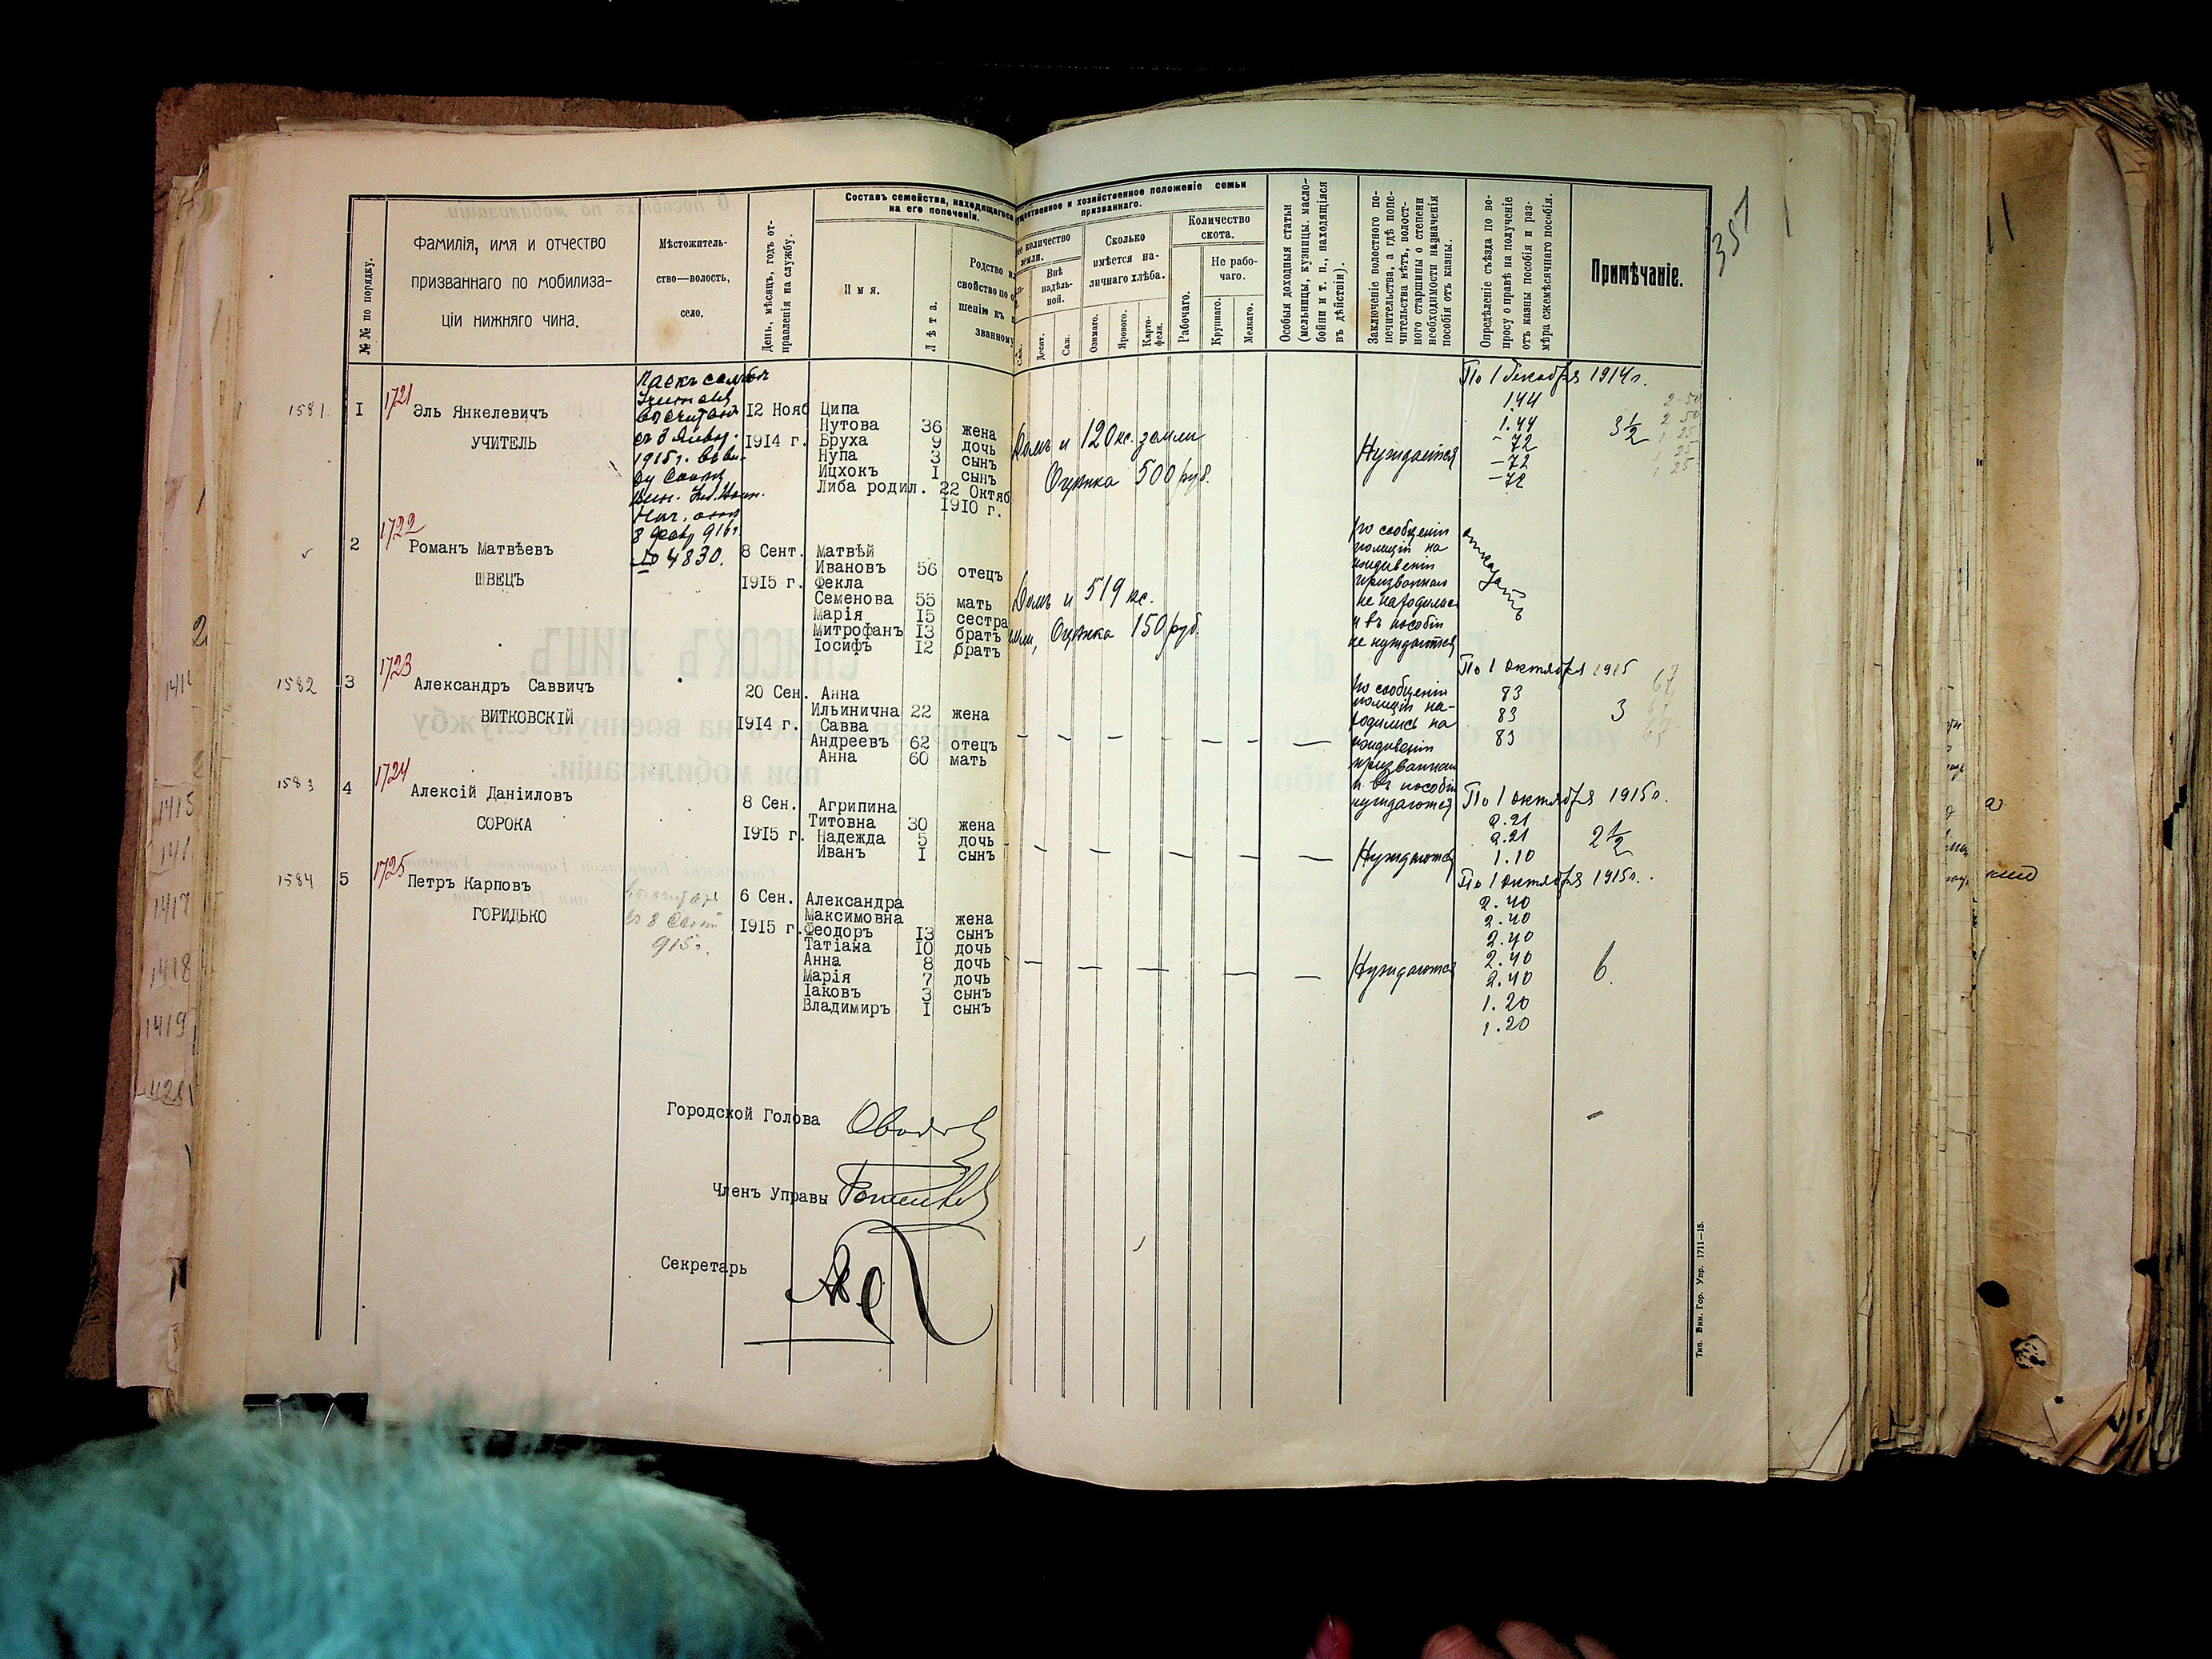 351
№№ по порядку.
Фамилія, имя и отчество
призваннаго по мобилиза-
ціи нижняго чина.
Мѣстожитель-
ство—волость,
село.
День, мѣсяцъ, годъ от-
правленія на службу.
Составъ семейства, находящагося
на его попеченіи.
Имя.
Лѣта.
Родство и
свойство по о
шенію къ п
званному
ущественное и хозяйственное положеніе семьи
призваннаго.
количество
земли.
Внѣ
надѣль-
ной.
Саж.
Десят.
Саж.
Сколько
имѣется на-
личнаго хлѣба.
Озимаго.
Яроваго.
Карто-
феля.
Количество
скота.
Рабочаго.
Не рабо-
чаго.
Крупнаго.
Мелкаго.
Особыя доходныя статьи
(мельницы, кузницы, масло-
бойни и т. п., находящіяся
въ дѣйствіи).
Заключеніе волостного по-
печительства, а гдѣ попе-
чительства нѣтъ, волост-
ного старшины о степени
необходимости назначенія
пособія отъ казны.
Опредѣленіе съѣзда по во-
просу о правѣ на полученіе
отъ казны пособія и раз-
мѣра ежемѣсячнаго пособія.
Примѣчаніе.
1581 1 1721
Эль Янкелевичъ
УЧИТЕЛЬ
1915 г.
12 Нояб
1914 г.
Ципа
Нутова 36 жена
Бруха 9 дочь
Нупа 3 сынъ
Ицхокъ 1 сынъ
Либа родил. 22 Октяб
1910 г.
Домъ и 120 кс. земли
Оцѣнка 500 руб.
Нуждается
По 1 декабря 1914 г.
1.44
1.44
-72
-72
-72
3½
2 1722
Романъ Матвѣевъ
ШВЕЦЪ
№ 4830.
8 Сент.
1915 г.
Матвѣй
Ивановъ 56 отецъ
Фекла
Семенова 55 мать
Марія 15 сестра
Митрофанъ 13 братъ
Іосифъ 12 братъ
Домъ и 519 кс.
Оцѣнка 150 руб.
по сообщенію
полиціи на
иждивеніи
призваннаго
не находились
и въ пособіи
не нуждаются
отказать
1582 3 1723
Александръ Саввичъ
ВИТКОВСКІЙ
20 Сен.
1914 г.
Анна
Ильинична 22 жена
Савва
Андреевъ 62 отецъ
Анна 60 мать
по сообщенію
полиціи на-
ходились на
иждивеніи
призваннаго
и въ пособіи
нуждаются
По 1 октября 1915
83
83
83
3
67
67
67
1583 4 1724
Алексій Даніиловъ
СОРОКА
8 Сен.
1915 г.
Агрипина
Титовна 30 жена
Надежда 5 дочь
Иванъ 1 сынъ
Нуждаются
По 1 октября 1915 г.
2.21
2.21
1.10
2½
1584 5 1725
Петръ Карповъ
ГОРИДЬКО
915 г.
6 Сен.
1915 г.
Александра
Максимовна жена
Феодоръ 13 сынъ
Татіана 10 дочь
Анна 8 дочь
Марія 7 дочь
Іаковъ 3 сынъ
Владимиръ 1 сынъ
Нуждаются
По 1 октября 1915 г.
2.40
2.40
2.40
2.40
2.40
1.20
1.20
6.
Городской Голова
Членъ Управы
Секретарь
Тип. Вин. Гор. Упр. 1711—15.
1415
1417
1418
1419